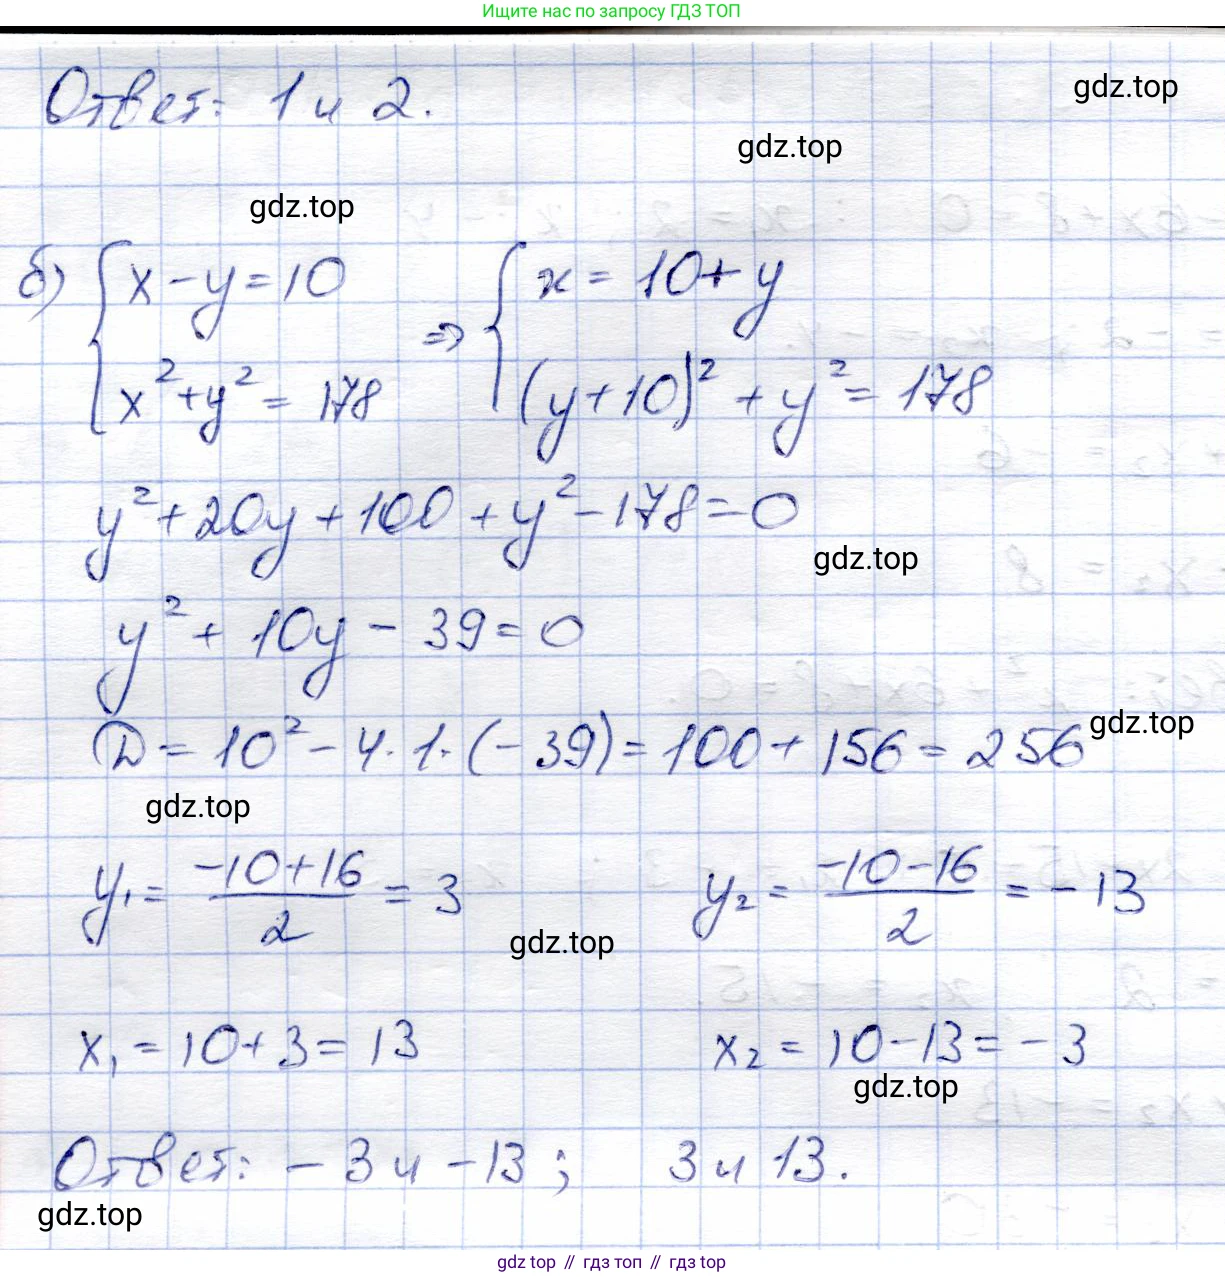 Ищите нас по запросу ГДЗ ТОП
Ответ: 1 и 2.
gdz.top
gdz.top
gdz.top
б) { x - y = 10 => { x = 10 + y
x² + y² = 178 (y + 10)² + y² = 178
y² + 20y + 100 + y² - 178 = 0
gdz.top
y² + 10y - 39 = 0
D = 10² - 4 · 1 · (-39) = 100 + 156 = 256
gdz.top
gdz.top
y₁ = (-10+16)/2 = 3 y₂ = (-10-16)/2 = -13
gdz.top
x₁ = 10 + 3 = 13 x₂ = 10 - 13 = -3
gdz.top
Ответ: -3 и -13; 3 и 13.
gdz.top
gdz top // гдз топ // gdz top